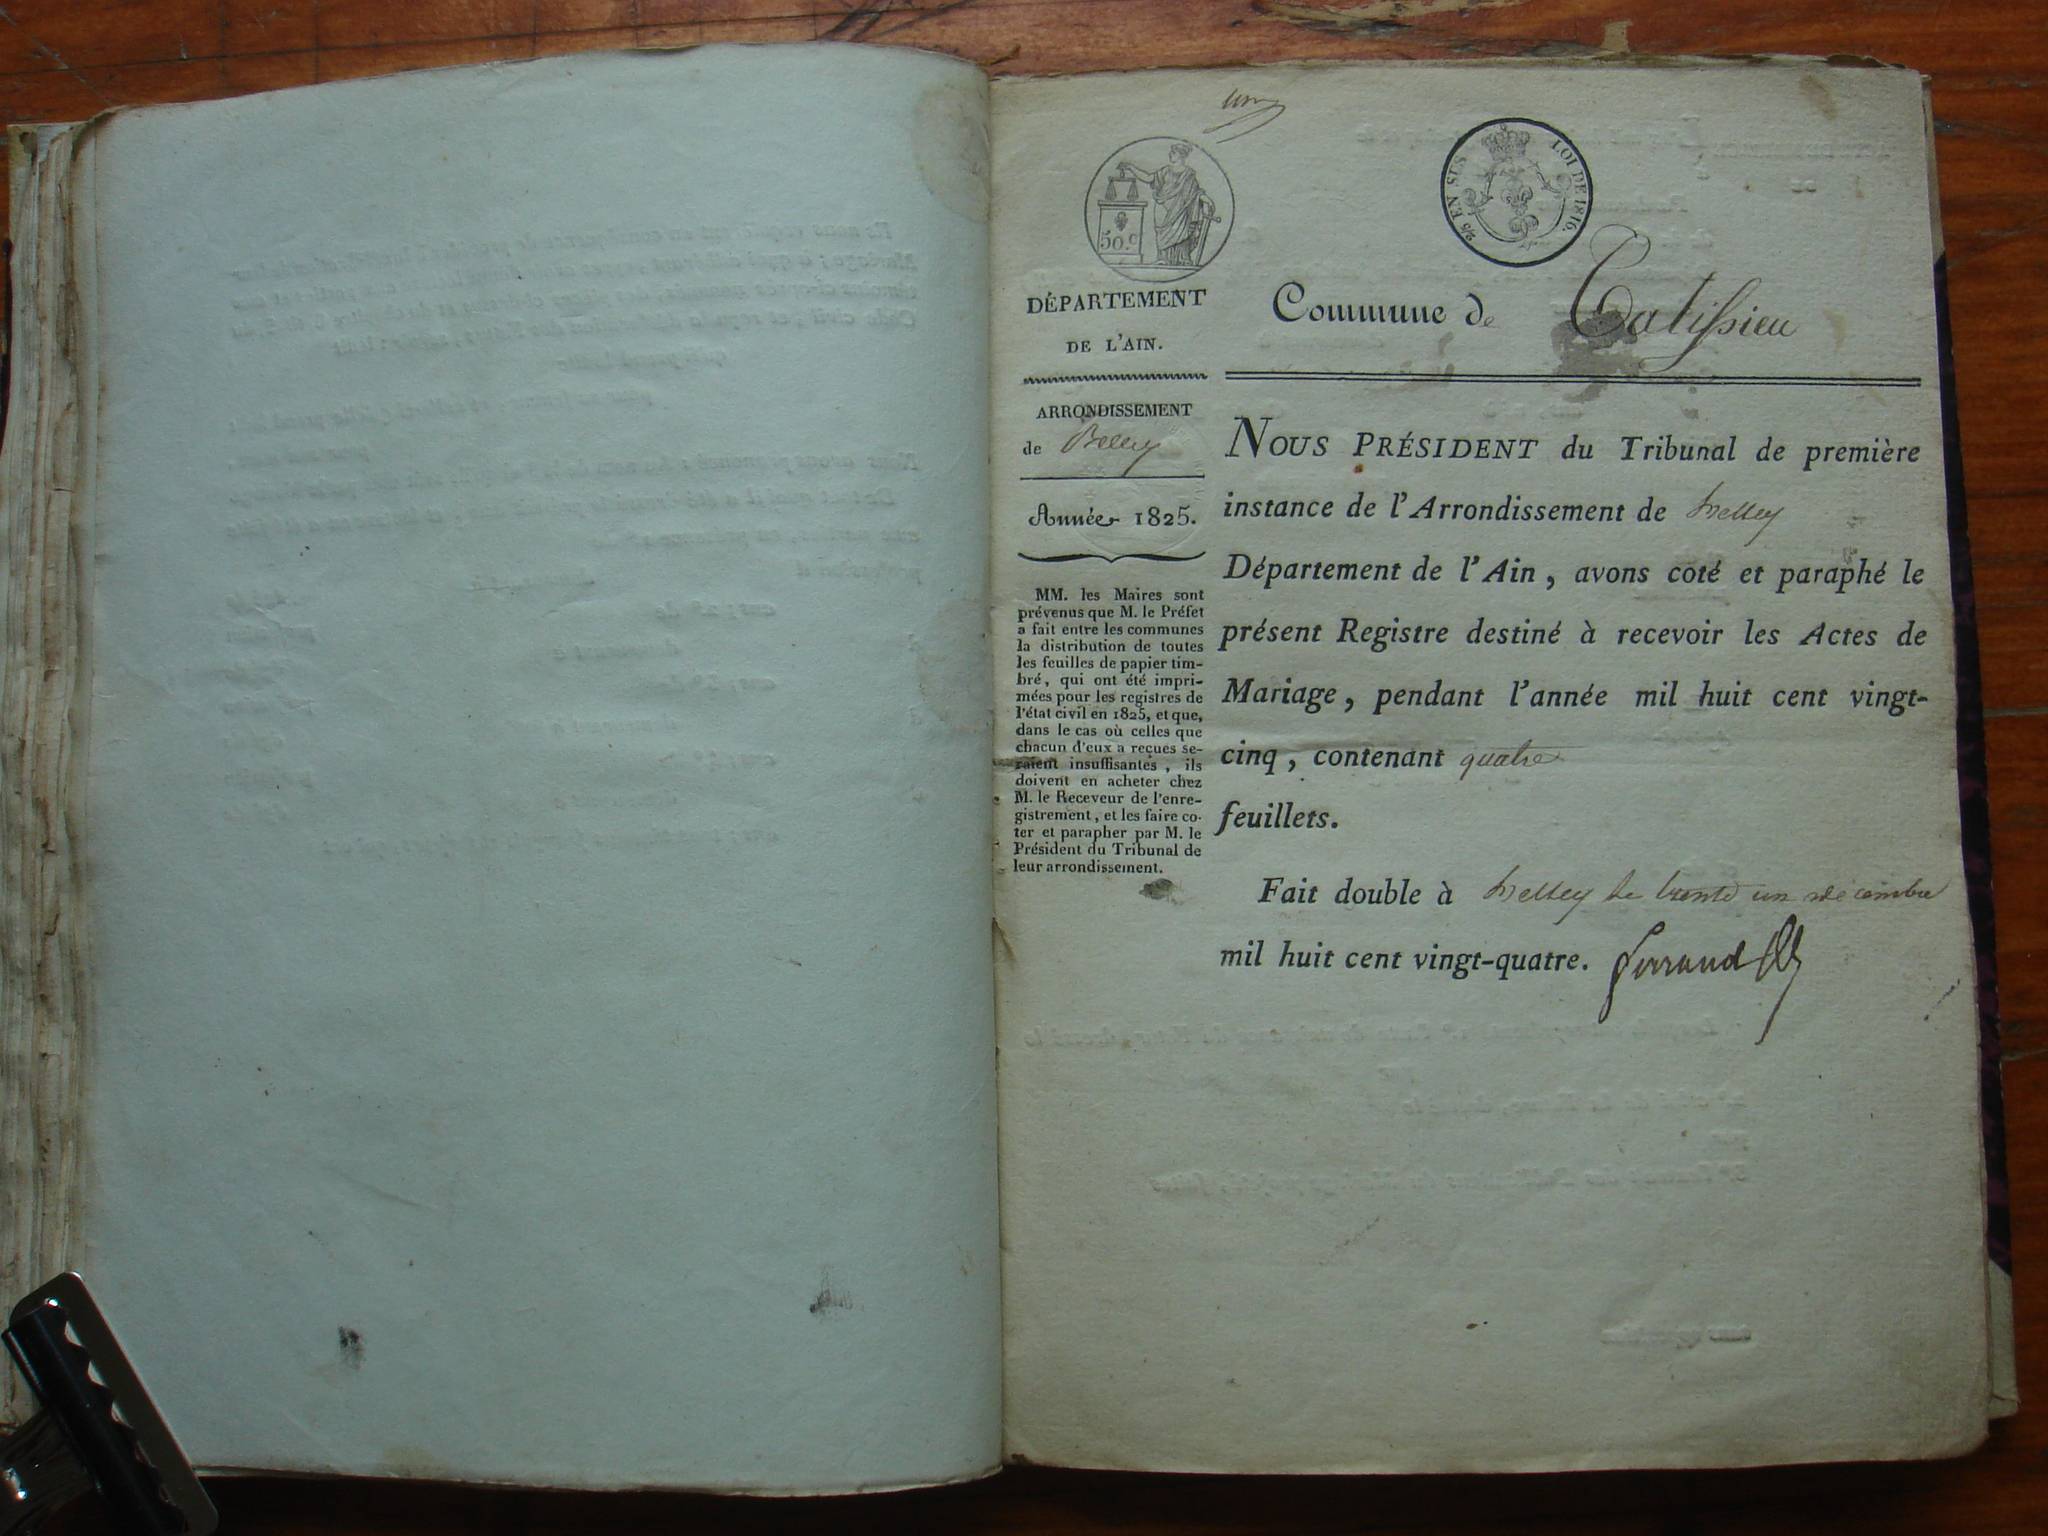 un
50.c
2/5 EN SUS LOI DE 1816.
DÉPARTEMENT
DE L'AIN.
Commune de Talissieu
ARRONDISSEMENT
de Belley
Année 1825.
MM. les Maires sont
prévenus que M. le Préfet
a fait entre les communes
la distribution de toutes
les feuilles de papier tim-
bré, qui ont été impri-
mées pour les registres de
l'état civil en 1825, et que,
dans le cas où celles que
chacun d'eux a reçues se-
raient insuffisantes, ils
doivent en acheter chez
M. le Receveur de l'enre-
gistrement, et les faire co-
ter et parapher par M. le
Président du Tribunal de
leur arrondissement.
NOUS PRÉSIDENT du Tribunal de première
instance de l'Arrondissement de Belley
Département de l'Ain, avons coté et paraphé le
présent Registre destiné à recevoir les Actes de
Mariage, pendant l'année mil huit cent vingt-
cinq, contenant quatre
feuillets.
Fait double à Belley le trente un décembre
mil huit cent vingt-quatre.